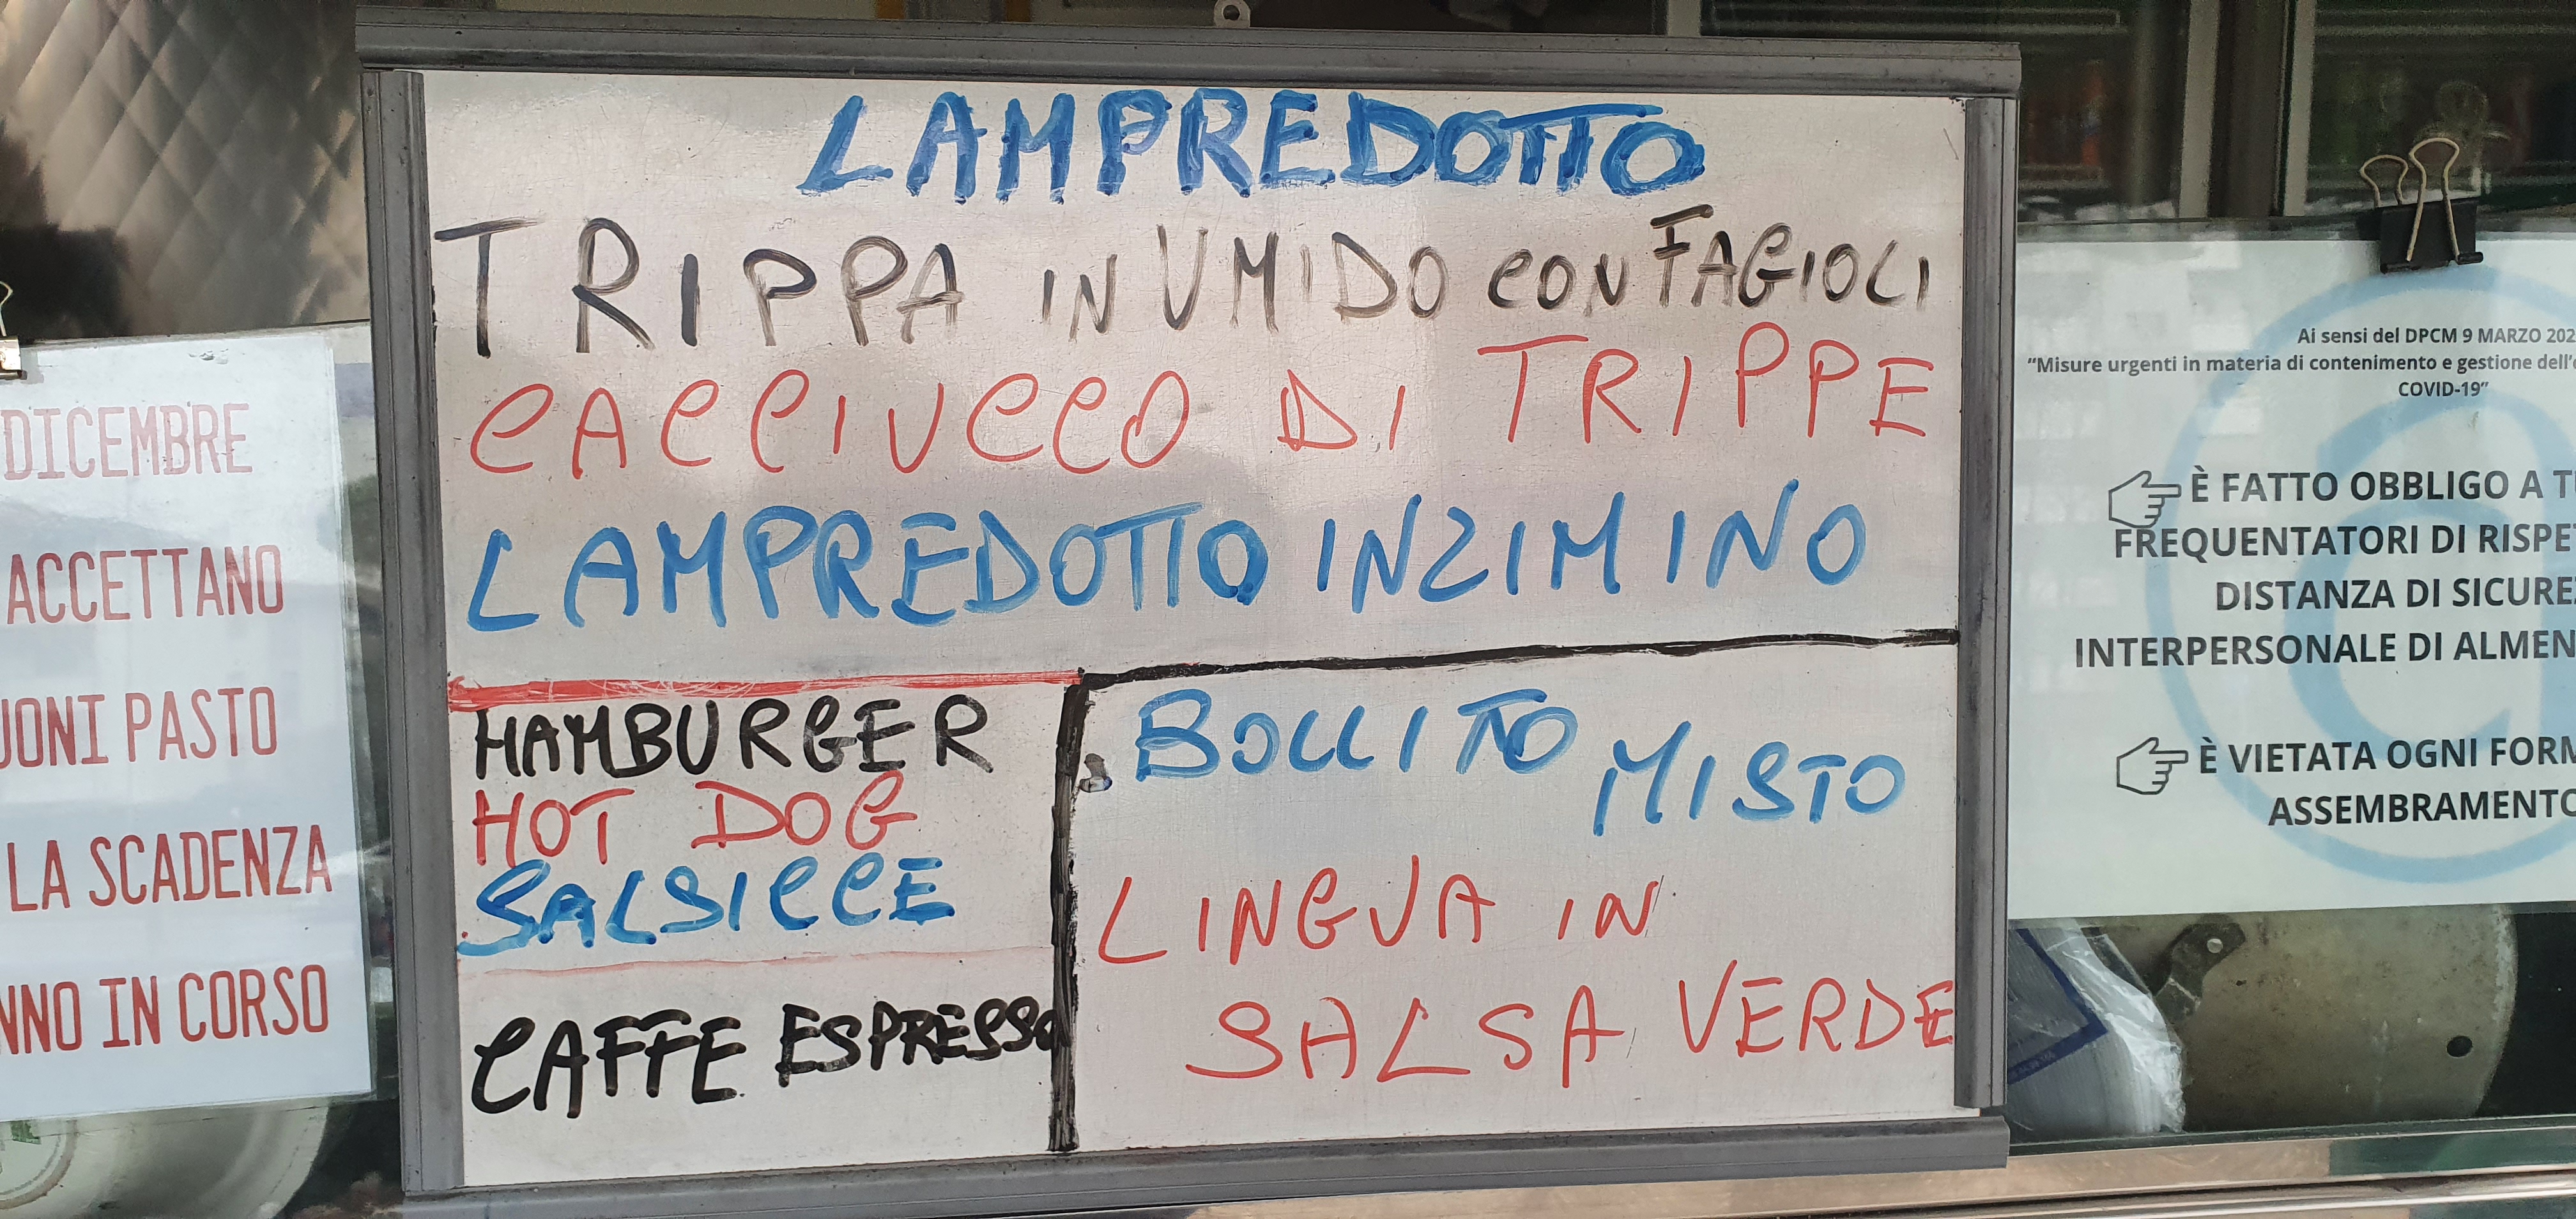 LAMPREDOTTO
TRIPPA IN UMIDO CON FAGIOLI
CACCIUCCO DI TRIPPE
LAMPREDOTTO INZIMINO
HAMBURGER
HOT DOG
SALSICCE
CAFFE ESPRESSO
BOLLITO MISTO
LINGUA IN
SALSA VERDE
DICEMBRE
ACCETTANO
UONI PASTO
LA SCADENZA
NNO IN CORSO
Ai sensi del DPCM 9 MARZO 202
“Misure urgenti in materia di contenimento e gestione dell'
COVID-19”
È FATTO OBBLIGO A T
FREQUENTATORI DI RISPE
DISTANZA DI SICURE
INTERPERSONALE DI ALMEN
È VIETATA OGNI FORM
ASSEMBRAMENTO